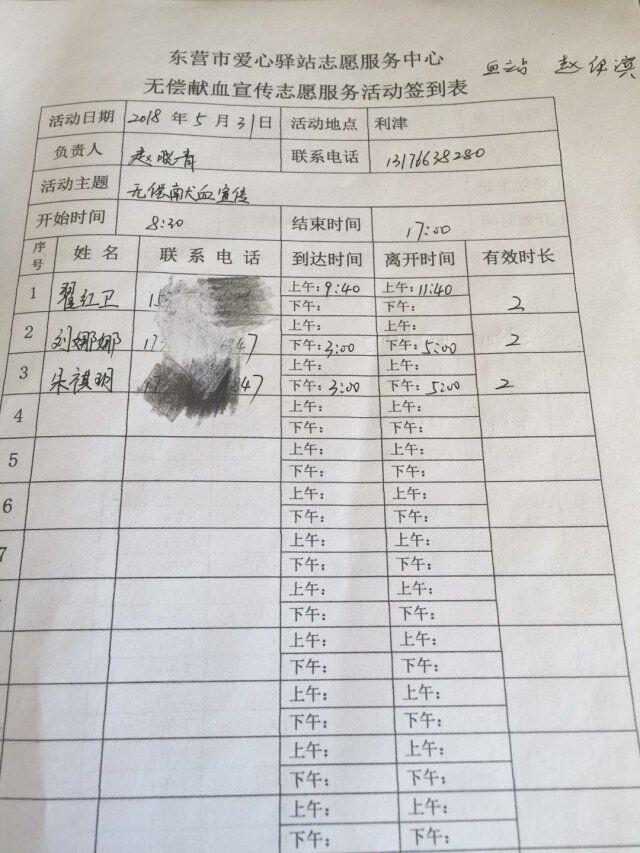 东营市爱心驿站志愿服务中心
血站 赵
无偿献血宣传志愿服务活动签到表
活动日期 2018年5月31日 活动地点 利津
负责人 赵晓青 联系电话 13176638280
活动主题 无偿献血宣传
开始时间 8:30 结束时间 17:00
序号 姓名 联系电话 到达时间 离开时间 有效时长
1 翟红卫 15 上午:9:40 上午:11:40 2
下午: 下午:
2 刘娜娜 17 847 上午: 上午: 2
下午:3:00 下午:5:00
3 朱祺玥 17 847 上午: 上午: 2
下午:3:00 下午:5:00
4 上午: 上午:
下午: 下午:
5 上午: 上午:
下午: 下午:
6 上午: 上午:
下午: 下午:
7 上午: 上午:
下午: 下午:
上午: 上午:
下午: 下午:
上午: 上午:
下午: 下午:
上午: 上午:
下午: 下午:
上午: 上午:
下午: 下午:
上午: 上午:
下午: 下午: